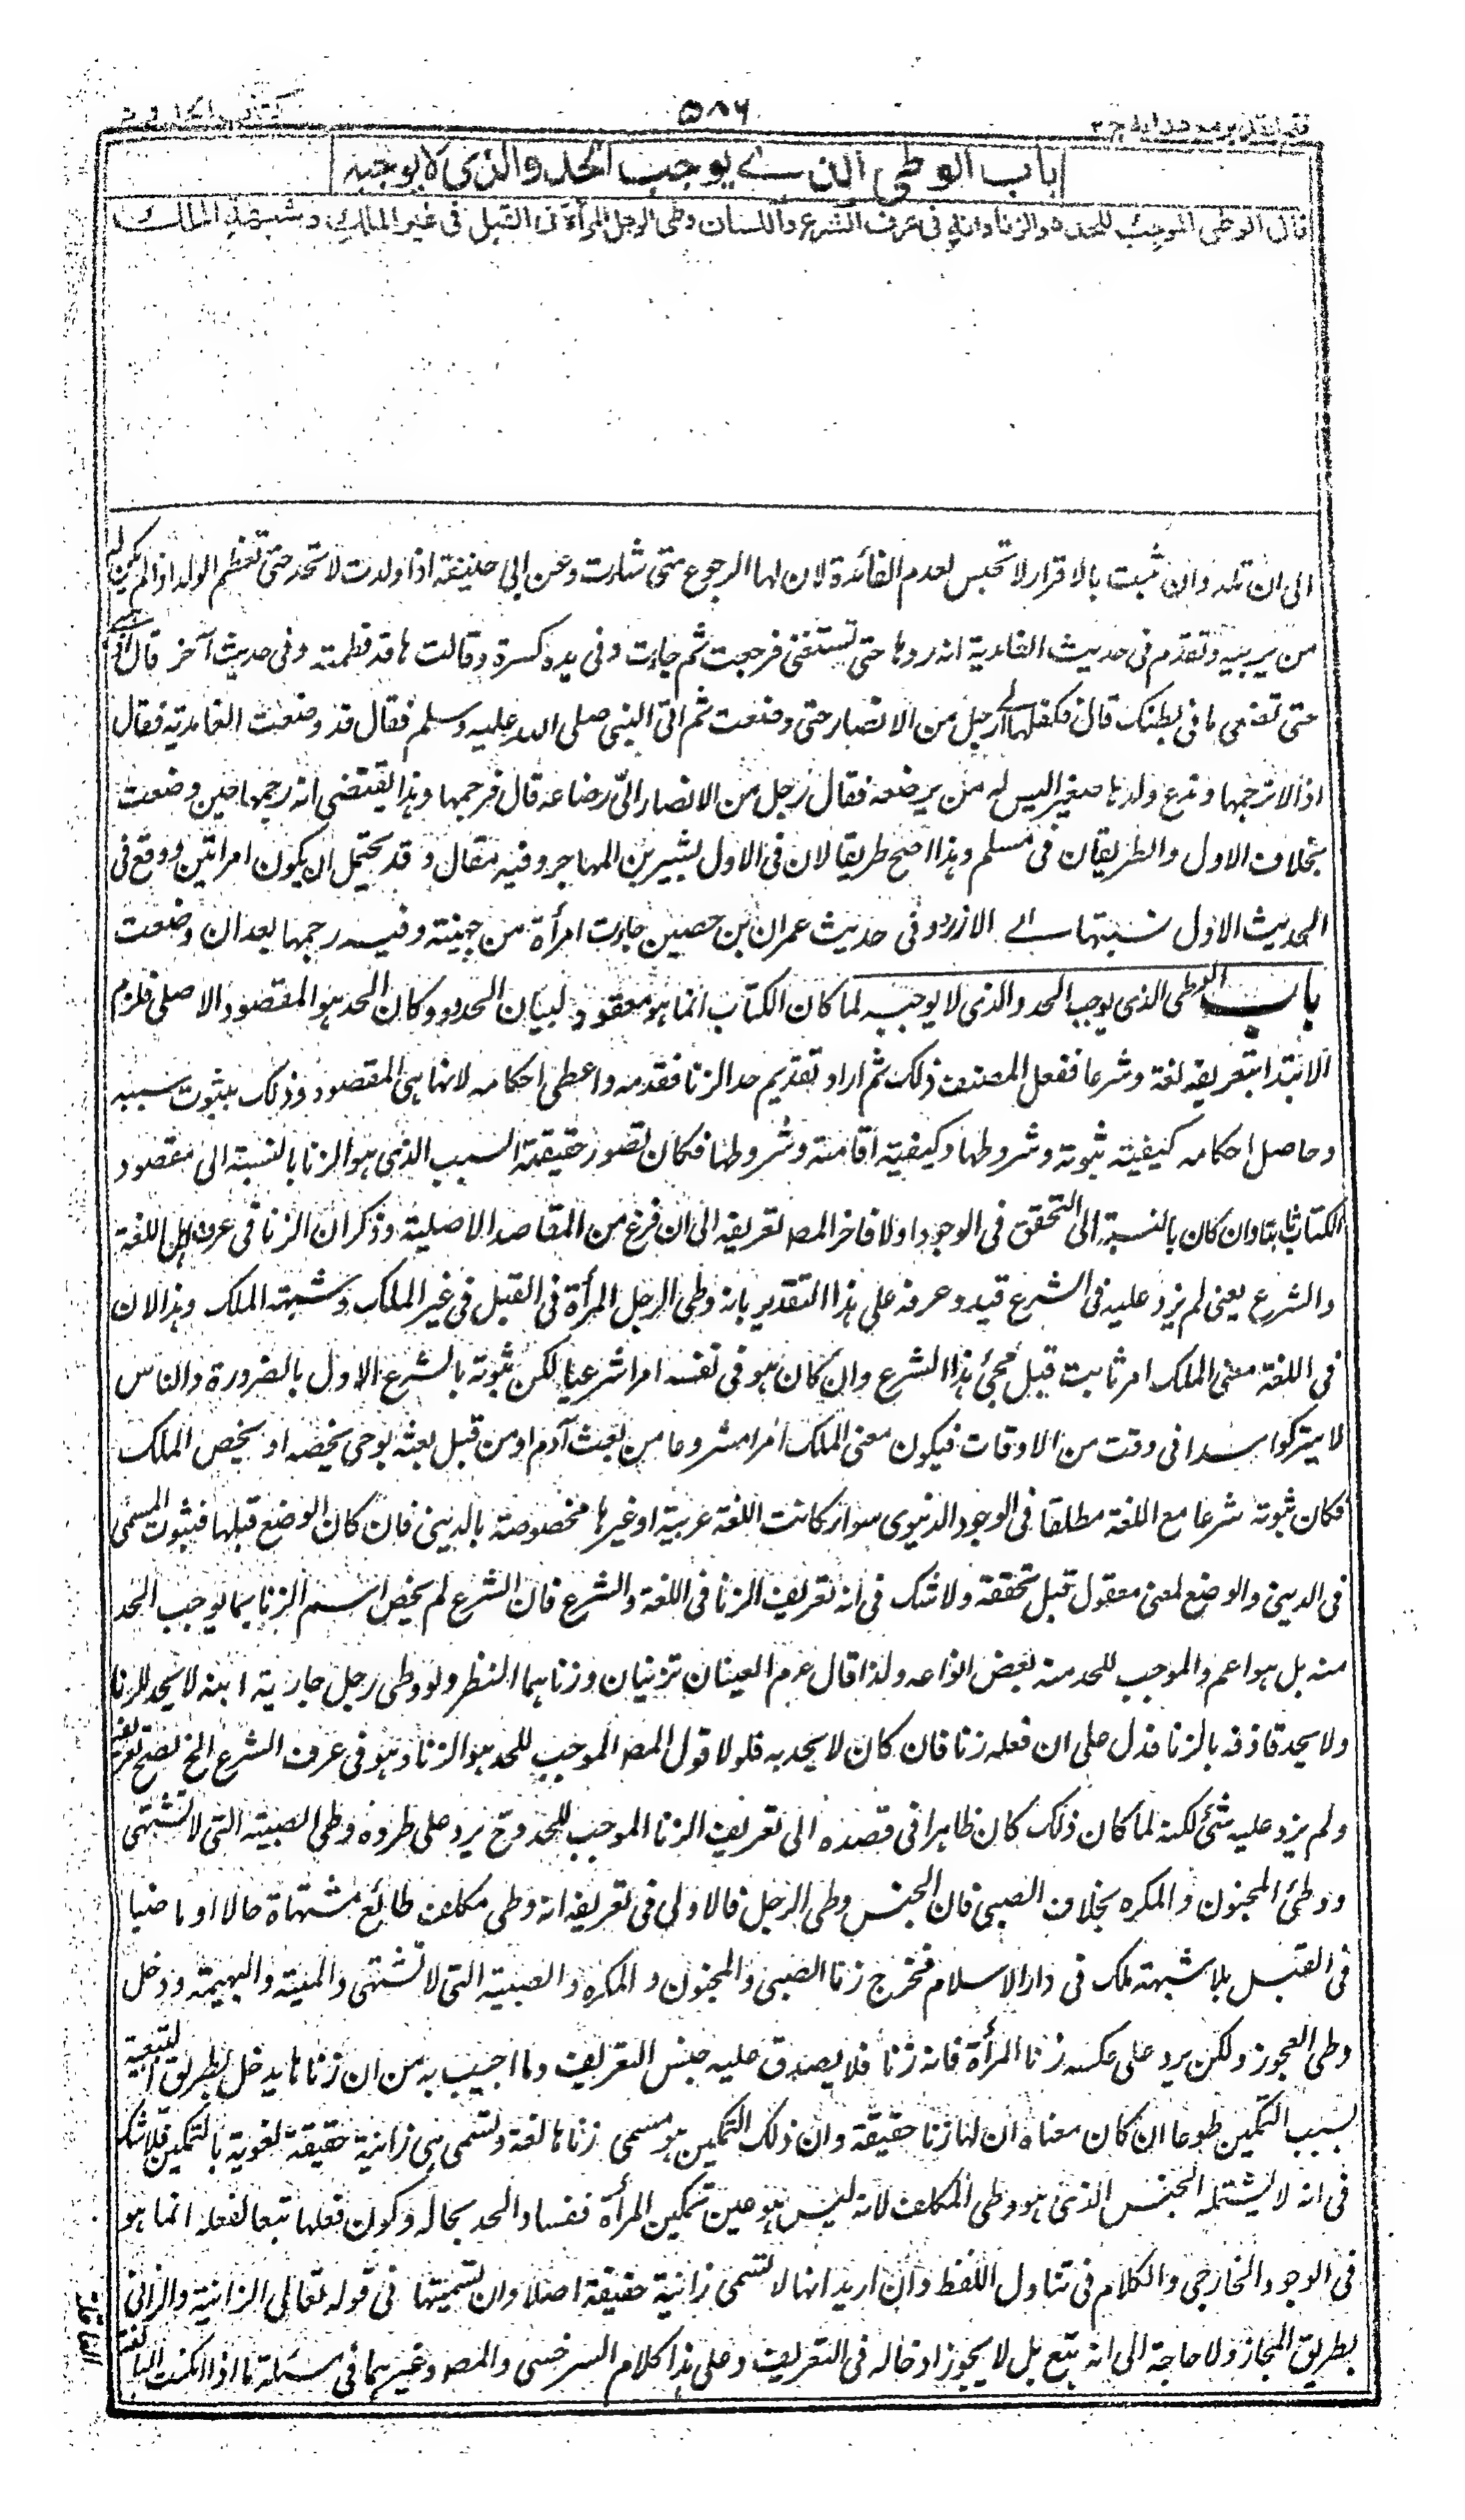 فتح القدير مع هداية ج ٢
٥٨٦
كتاب الحدود
باب الوطى الذے يوجب الحد والذى لا يوجبه
قال الوطى الموجب للحد هو الزنا وانه فى عرف الشرع واللسان وطى الرجل المرأة فى القبل فى غير الملك وشبهة الملك
الى ان تلد وان ثبت بالاقرار لا تحبس لعدم الفائدة لان لها الرجوع متى شاءت وعن ابى حنيفة اذا ولدت لا تحد حتى تعظم الولد اذا لم يكن له
من يربيه وتقدم فى حديث الغامدية انه ردها حتى تستغنى فرجعت ثم جاءت وفى يده كسرة وقالت ها قد فطمته وفى حديث آخر قال اذهبى
حتى تضعى ما فى بطنك قال فكفلها رجل من الانصار حتى وضعت ثم اتى النبى صلى الله عليه وسلم فقال قد وضعت الغامدية فقال
اذا لا نرجمها وندع ولدها صغيرا ليس له من يرضعه فقال رجل من الانصار الىّ رضاعه قال فرجمها وهذا يقتضى انه رجمها حين وضعت
بخلاف الاول والطريقان فى مسلم وهذا اصح طريقا لان فى الاول بشير بن المهاجر وفيه مقال وقد يحتمل ان يكون امراتين ووقع فى
الحديث الاول نسبتها الے الازد وفى حديث عمران بن حصين جاءت امرأة من جهينة وفيه رجمها بعد ان وضعت
باب الوطى الذى يوجب الحد والذى لا يوجبه لما كان الكتاب انما هو معقود لبيان الحدود وكان الحد هو المقصود الاصلى فلزم
الابتدا بتعريفه لغة وشرعا ففعل المصنف ذلك ثم اراد تقديم حد الزنا فقدمه واعطى احكامه لانها هى المقصود وذلك بثبوت سببه
وحاصل احكامه كيفية ثبوته وشروطها وكيفية اقامته وشروطها فكان تصور حقيقة السبب الذى هو الزنا بالنسبة الى مقصود
الكتاب ثابتا وان كان بالنسبة الى التحقق فى الوجود اولا فاخر المصـ تعريفه الى ان فرغ من المقاصد الاصلية وذكر ان الزنا فى عرف اهل اللغة
والشرع يعنى لم يزد عليه فى الشرع قيد وعرفه على هذا التقدير بانه وطى الرجل المرأة فى القبل فى غير الملك وشبهة الملك وهذا لان
فى اللغة معنى الملك امر ثابت قبل مجئ هذا الشرع وان كان هو فى نفسه امرا شرعيا لكن ثبوته بالشرع الاول بالضرورة والناس
لا يتركوا سدا فى وقت من الاوقات فيكون معنى الملك امرا مشروعا من بعث آدم او من قبل بعثه بوحى يخصه او يخص الملك
فكان ثبوته شرعا مع اللغة مطلقا فى الوجود الدنيوى سواء كانت اللغة عربية او غيرها مخصوصة بالدينى فان كان الوضع قبلها فثبوت المسمى
فى الدينى والوضع لمعنى معقول قبل تحققه ولا شك فى انه تعريف الزنا فى اللغة والشرع فان الشرع لم يخص اسم الزنا بما يوجب الحد
منه بل هو اعم والموجب للحد منه بعض انواعه ولذا قال عم العينان تزنيان وزناهما النظر ولو وطى رجل جارية ابنه لا يحد للزنا
ولا يحد قاذفه بالزنا فدل على ان فعله زنا فان كان لا يحد به فلولا قول المصـ الموجب للحد هو الزنا وهو فى عرف الشرع الخ لصح تعريفه
ولم يرد عليه شئ لكنه لما كان ذلك كان ظاهرا فى قصده الى تعريف الزنا الموجب للحد وح يرد على طرده وطى الصبية التى لا تشتهى
ووطئ المجنون والمكره بخلاف الصبى فان الجنس وطى الرجل فالاولى فى تعريفه انه وطى مكلف طائع مشتهاة حالا او ماضيا
فى القبل بلا شبهة ملك فى دار الاسلام فخرج زنا الصبى والمجنون والمكره والصبية التى لا تشتهى والميتة والبهيمة ودخل
وطى العجوز ولكن يرد على عكسه زنا المرأة فانه زنا فلا يصدق عليه جنس التعريف وما اجيب به من ان زناها يدخل بطريق التبعية
بسبب التمكين طوعا ان كان معناه ان لها زنا حقيقة وان ذلك التمكين هو مسمى زناها لغة وتسمى هى زانية حقيقة لغوية بالتمكين فلا شك
فى انه لا يشتمله الجنس الذى هو وطى المكلف لانه ليس هو عين تمكين المرأة ففساد الحد بحاله وكون فعلها تبعا لفعله انما هو
فى الوجود الخارجى والكلام فى تناول اللفظ وان اريد انها لا تسمى زانية حقيقة اصلا وان تسميتها فى قوله تعالى الزانية والزانى
بطريق المجاز ولا حاجة الى انه تبع بل لا يجوز ادخاله فى التعريف وعلى هذا كلام السرخسى والمصـ وغيرهما فى مسئلة ما اذا امكنت البالغة